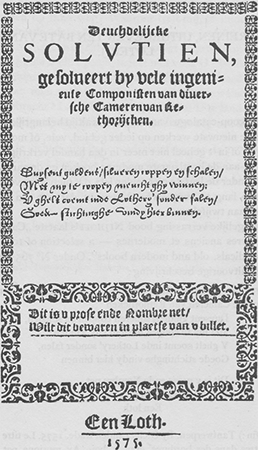 Deuchdelijcke
SOLVTIEN,
gesolueert by vele ingeni-
euse Componisten van diuer-
sche Cameren van Re-
thorijcken.
Duysent guldens / silueren coppen en schalen /
Met my te coopen meucht ghy winnen;
V ghelt coemt inde Lothery sonder falen,
Soeck stichtinghe vindy hier binnen.
Dit is v prose ende Nombre net/
Wilt dit bewaren in plaetse van v billet.
Een Loth.
1575.